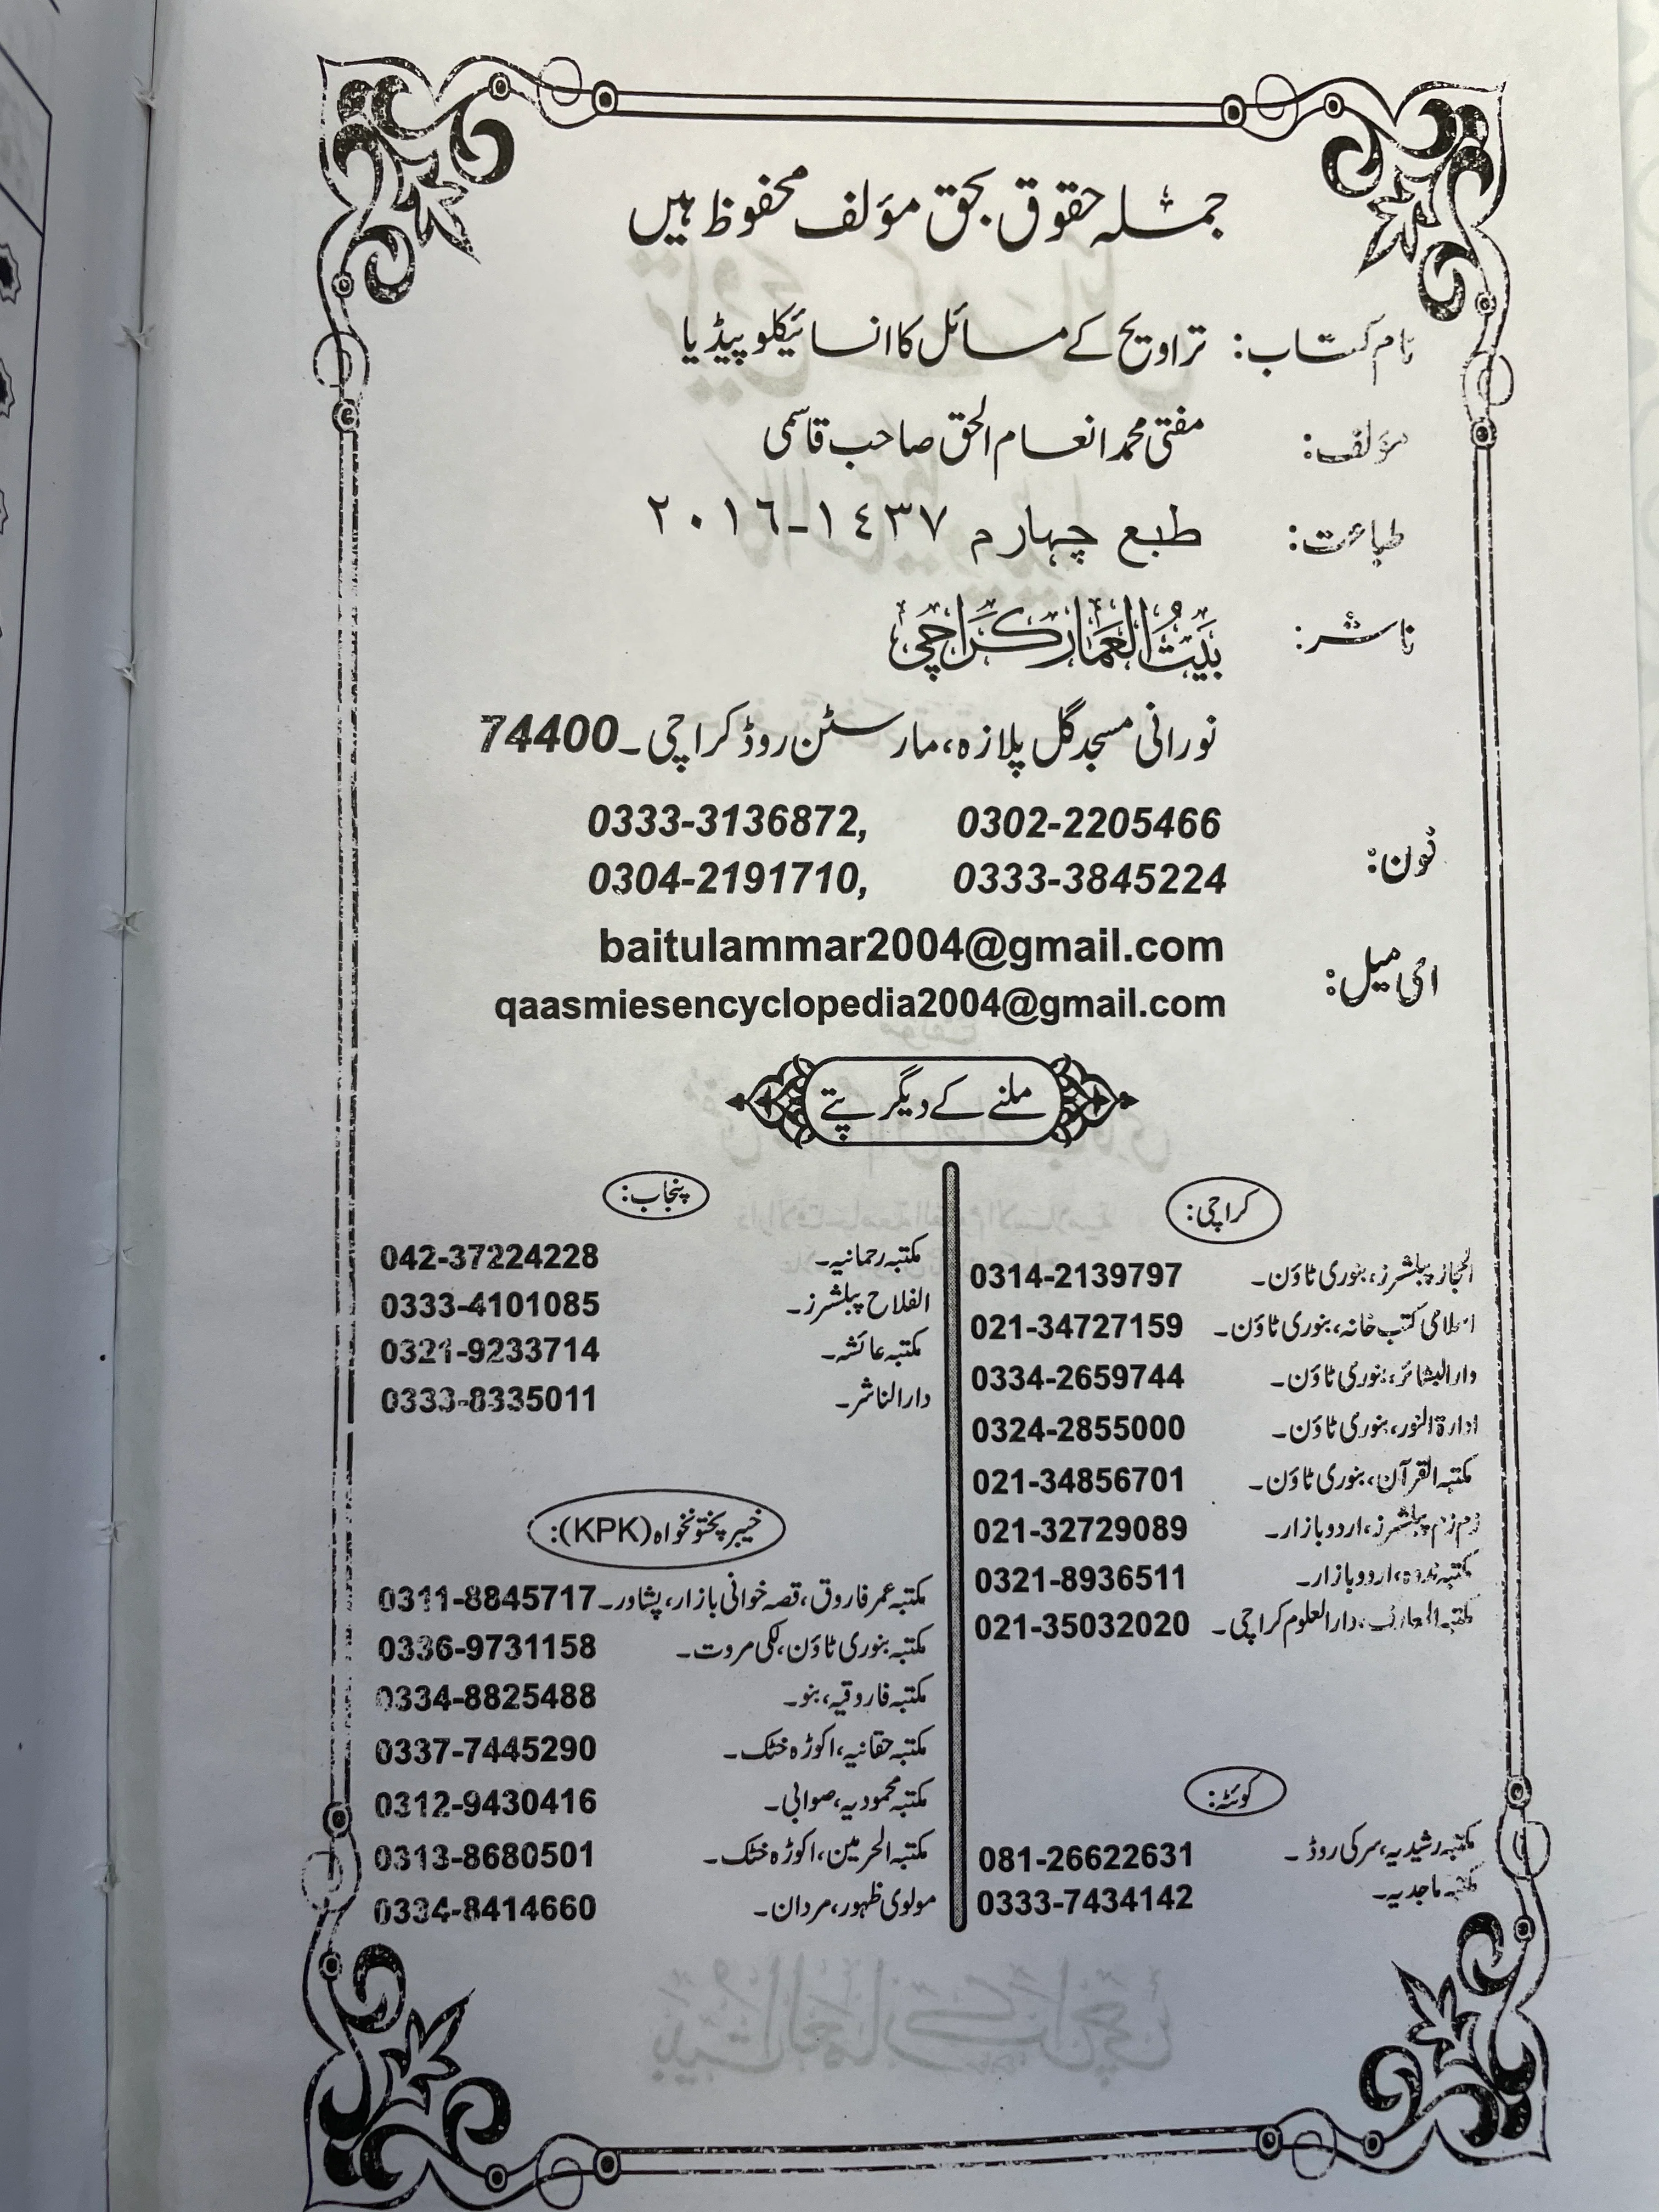 جملہ حقوق بحق مؤلف محفوظ ہیں
نام کتاب: تراویح کے مسائل کا انسائیکلوپیڈیا
مؤلف: مفتی محمد انعام الحق صاحب قاسمی
طباعت: طبع چہارم ١٤٣٧-٢٠١٦
ناشر: بَيتُ العَمَار كَراچی
نورانی مسجد گل پلازہ، مارسٹن روڈ کراچی۔ 74400
فون: 0333-3136872, 0302-2205466
0304-2191710, 0333-3845224
ای میل: baitulammar2004@gmail.com
qaasmiesencyclopedia2004@gmail.com
ملنے کے دیگر پتے
کراچی:
الحجاز پبلشرز، بنوری ٹاؤن۔ 0314-2139797
اسلامی کتب خانہ، بنوری ٹاؤن۔ 021-34727159
دارالبشائر، بنوری ٹاؤن۔ 0334-2659744
ادارۃ النور، بنوری ٹاؤن۔ 0324-2855000
مکتبہ القرآن، بنوری ٹاؤن۔ 021-34856701
زم زم پبلشرز، اردو بازار۔ 021-32729089
مکتبہ ندوہ، اردو بازار۔ 0321-8936511
مکتبہ المعارف، دارالعلوم کراچی۔ 021-35032020
کوئٹہ:
مکتبہ رشیدیہ، سرکی روڈ۔ 081-26622631
مکتبہ ماجدیہ۔ 0333-7434142
پنجاب:
مکتبہ رحمانیہ۔ 042-37224228
الفلاح پبلشرز۔ 0333-4101085
مکتبہ عائشہ۔ 0321-9233714
دارالناشر۔ 0333-8335011
خیبر پختونخواہ (KPK):
مکتبہ عمر فاروق، قصہ خوانی بازار، پشاور۔ 0311-8845717
مکتبہ بنوری ٹاؤن، لکی مروت۔ 0336-9731158
مکتبہ فاروقیہ، بنو۔ 0334-8825488
مکتبہ حقانیہ، اکوڑہ خٹک۔ 0337-7445290
مکتبہ محمودیہ، صوابی۔ 0312-9430416
مکتبہ الحرمین، اکوڑہ خٹک۔ 0313-8680501
مولوی ظہور، مردان۔ 0334-8414660